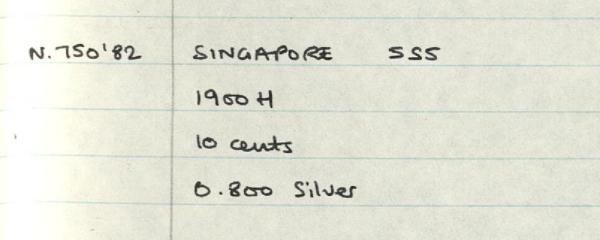 N.750'82 SINGAPORE SS5
1900 H
10 cents
0.800 Silver